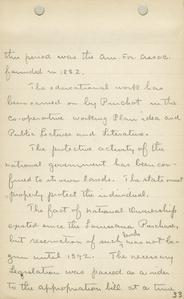 this period was the Am. For. Assoc.
founded in 1882.
The educational work has
been carried on by Pinchot in the
co-operative working Plan idea and
Public Lectures and Literature.
The protective activity of the
national government has been con-
fined to its own lands. The state must
properly protect the individual.
The fact of national Ownership
existed since the Louisiana Purchase,
but reservation of such lands was not be
gun until 1892. The necessary
legislation was passed as a rider
to the appropriation bill at a time
33